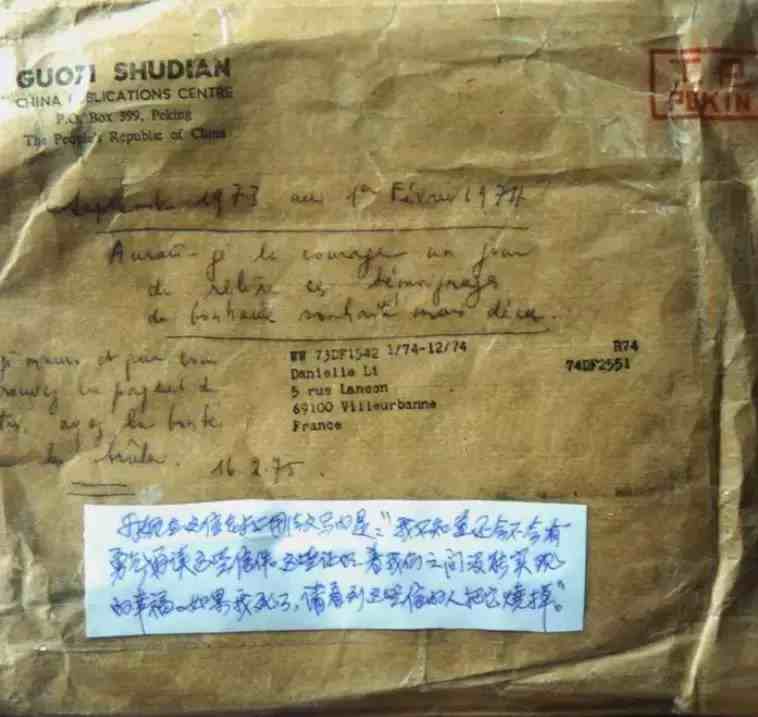 GUOZI SHUDIAN
CHINA PUBLICATIONS CENTRE
P.O. Box 399, Peking
The People's Republic of China
PEKIN
Septembre 1973 au 1er Février 1974
Aurai-je le courage un jour
de relire ces témoignages
de bonheur souhaité mais déçu.
meurs et que
ayez la bonté
les brûler. 16.2.75.
WW 73DF1542 1/74-12/74 R74
Danielle Li 74DF2551
5 rue Lançon
69100 Villeurbanne
France
我不知道还会不会有
勇气再读这些信件。这些证明着我们之间没能实现
的幸福。如果我死了,请看到这些信的人把它烧掉。"